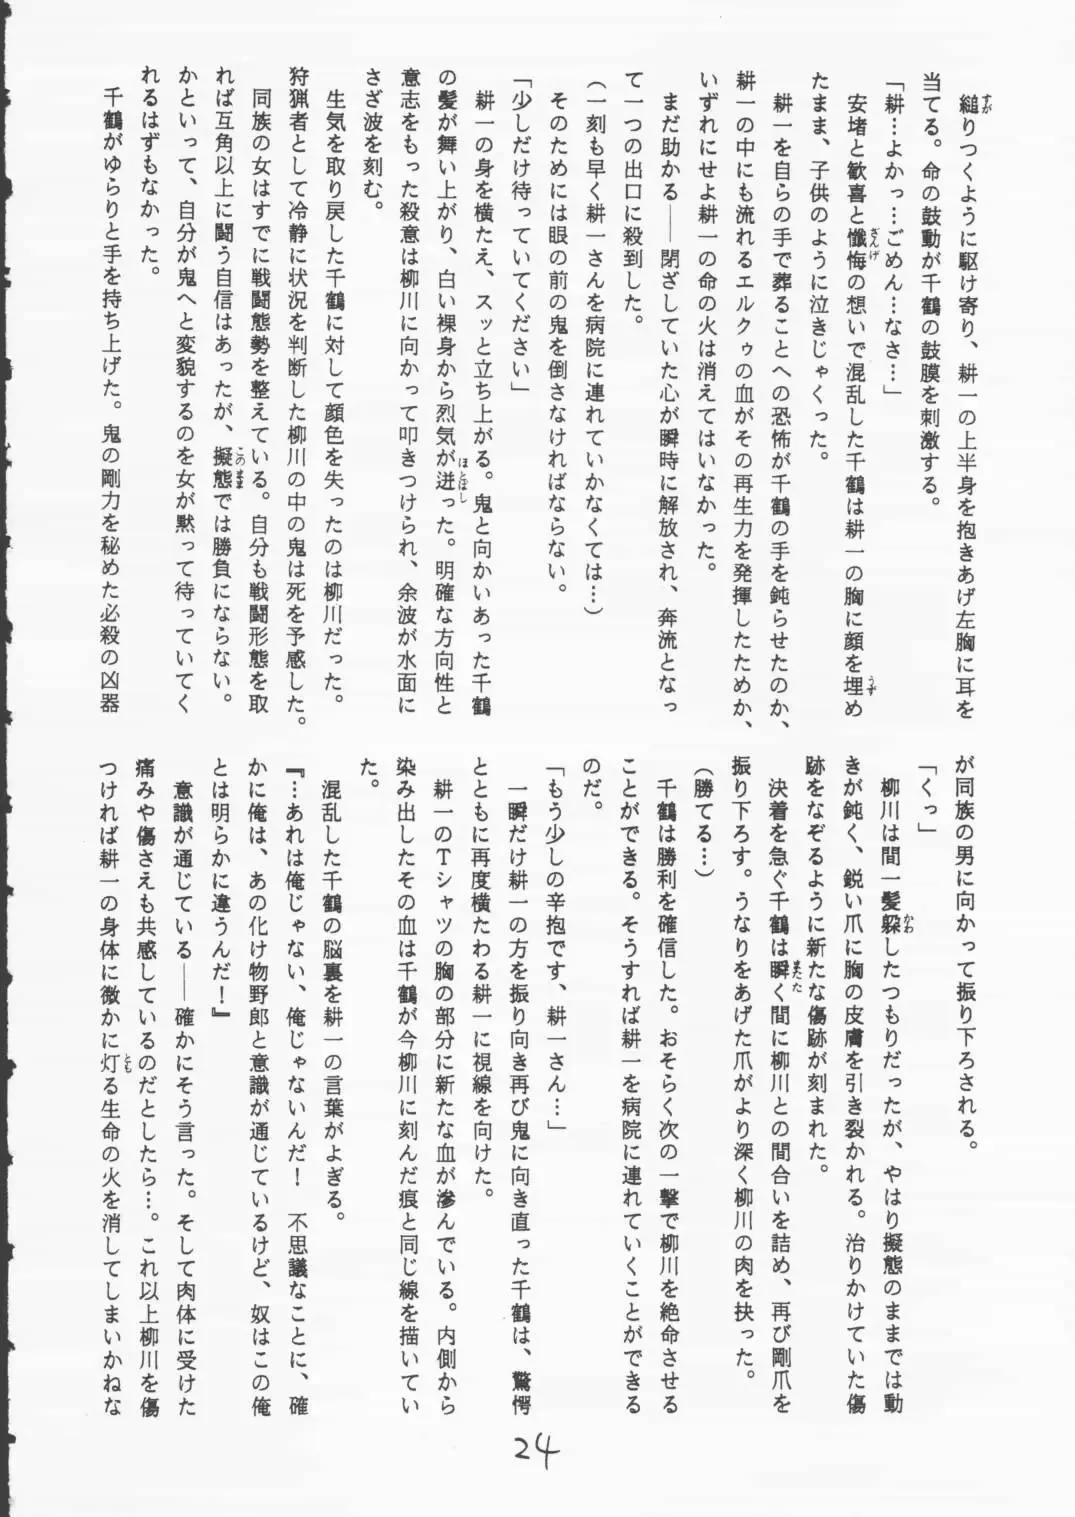 縋りつくように駆け寄り、耕一の上半身を抱きあげ左胸に耳を
当てる。命の鼓動が千鶴の鼓膜を刺激する。
「耕…よかっ…ごめん…なさ…」
安堵と歓喜と懺悔の想いで混乱した千鶴は耕一の胸に顔を埋め
たまま、子供のように泣きじゃくった。
耕一を自らの手で葬ることへの恐怖が千鶴の手を鈍らせたのか、
耕一の中にも流れるエルクゥの血がその再生力を発揮したためか、
いずれにせよ耕一の命の火は消えてはいなかった。
まだ助かる――閉ざしていた心が瞬時に解放され、奔流となっ
て一つの出口に殺到した。
（一刻も早く耕一さんを病院に連れていかなくては…）
そのためには眼の前の鬼を倒さなければならない。
「少しだけ待っていてください」
耕一の身を横たえ、スッと立ち上がる。鬼と向かいあった千鶴
の髪が舞い上がり、白い裸身から烈気が迸った。明確な方向性と
意志をもった殺意は柳川に向かって叩きつけられ、余波が水面に
さざ波を刻む。
生気を取り戻した千鶴に対して顔色を失ったのは柳川だった。
狩猟者として冷静に状況を判断した柳川の中の鬼は死を予感した。
同族の女はすでに戦闘態勢を整えている。自分も戦闘形態を取
れば互角以上に闘う自信はあったが、擬態では勝負にならない。
かといって、自分が鬼へと変貌するのを女が黙って待っていてく
れるはずもなかった。
千鶴がゆらりと手を持ち上げた。鬼の剛力を秘めた必殺の凶器
が同族の男に向かって振り下ろされる。
「くっ」
柳川は間一髪躱したつもりだったが、やはり擬態のままでは動
きが鈍く、鋭い爪に胸の皮膚を引き裂かれる。治りかけていた傷
跡をなぞるように新たな傷跡が刻まれた。
決着を急ぐ千鶴は瞬く間に柳川との間合いを詰め、再び剛爪を
振り下ろす。うなりをあげた爪がより深く柳川の肉を抉った。
（勝てる…）
千鶴は勝利を確信した。おそらく次の一撃で柳川を絶命させる
ことができる。そうすれば耕一を病院に連れていくことができる
のだ。
「もう少しの辛抱です、耕一さん…」
一瞬だけ耕一の方を振り向き再び鬼に向き直った千鶴は、驚愕
とともに再度横たわる耕一に視線を向けた。
耕一のＴシャツの胸の部分に新たな血が滲んでいる。内側から
染み出したその血は千鶴が今柳川に刻んだ痕と同じ線を描いてい
た。
混乱した千鶴の脳裏を耕一の言葉がよぎる。
『…あれは俺じゃない、俺じゃないんだ！　不思議なことに、確
かに俺は、あの化け物野郎と意識が通じているけど、奴はこの俺
とは明らかに違うんだ！』
意識が通じている――確かにそう言った。そして肉体に受けた
痛みや傷さえも共感しているのだとしたら…。これ以上柳川を傷
つければ耕一の身体に微かに灯る生命の火を消してしまいかねな
24